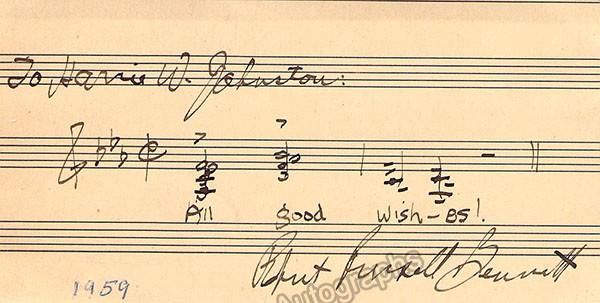 To Harrie W. Johnston:
All good wish-es!
Robert Russell Bennett
1959
Autographs